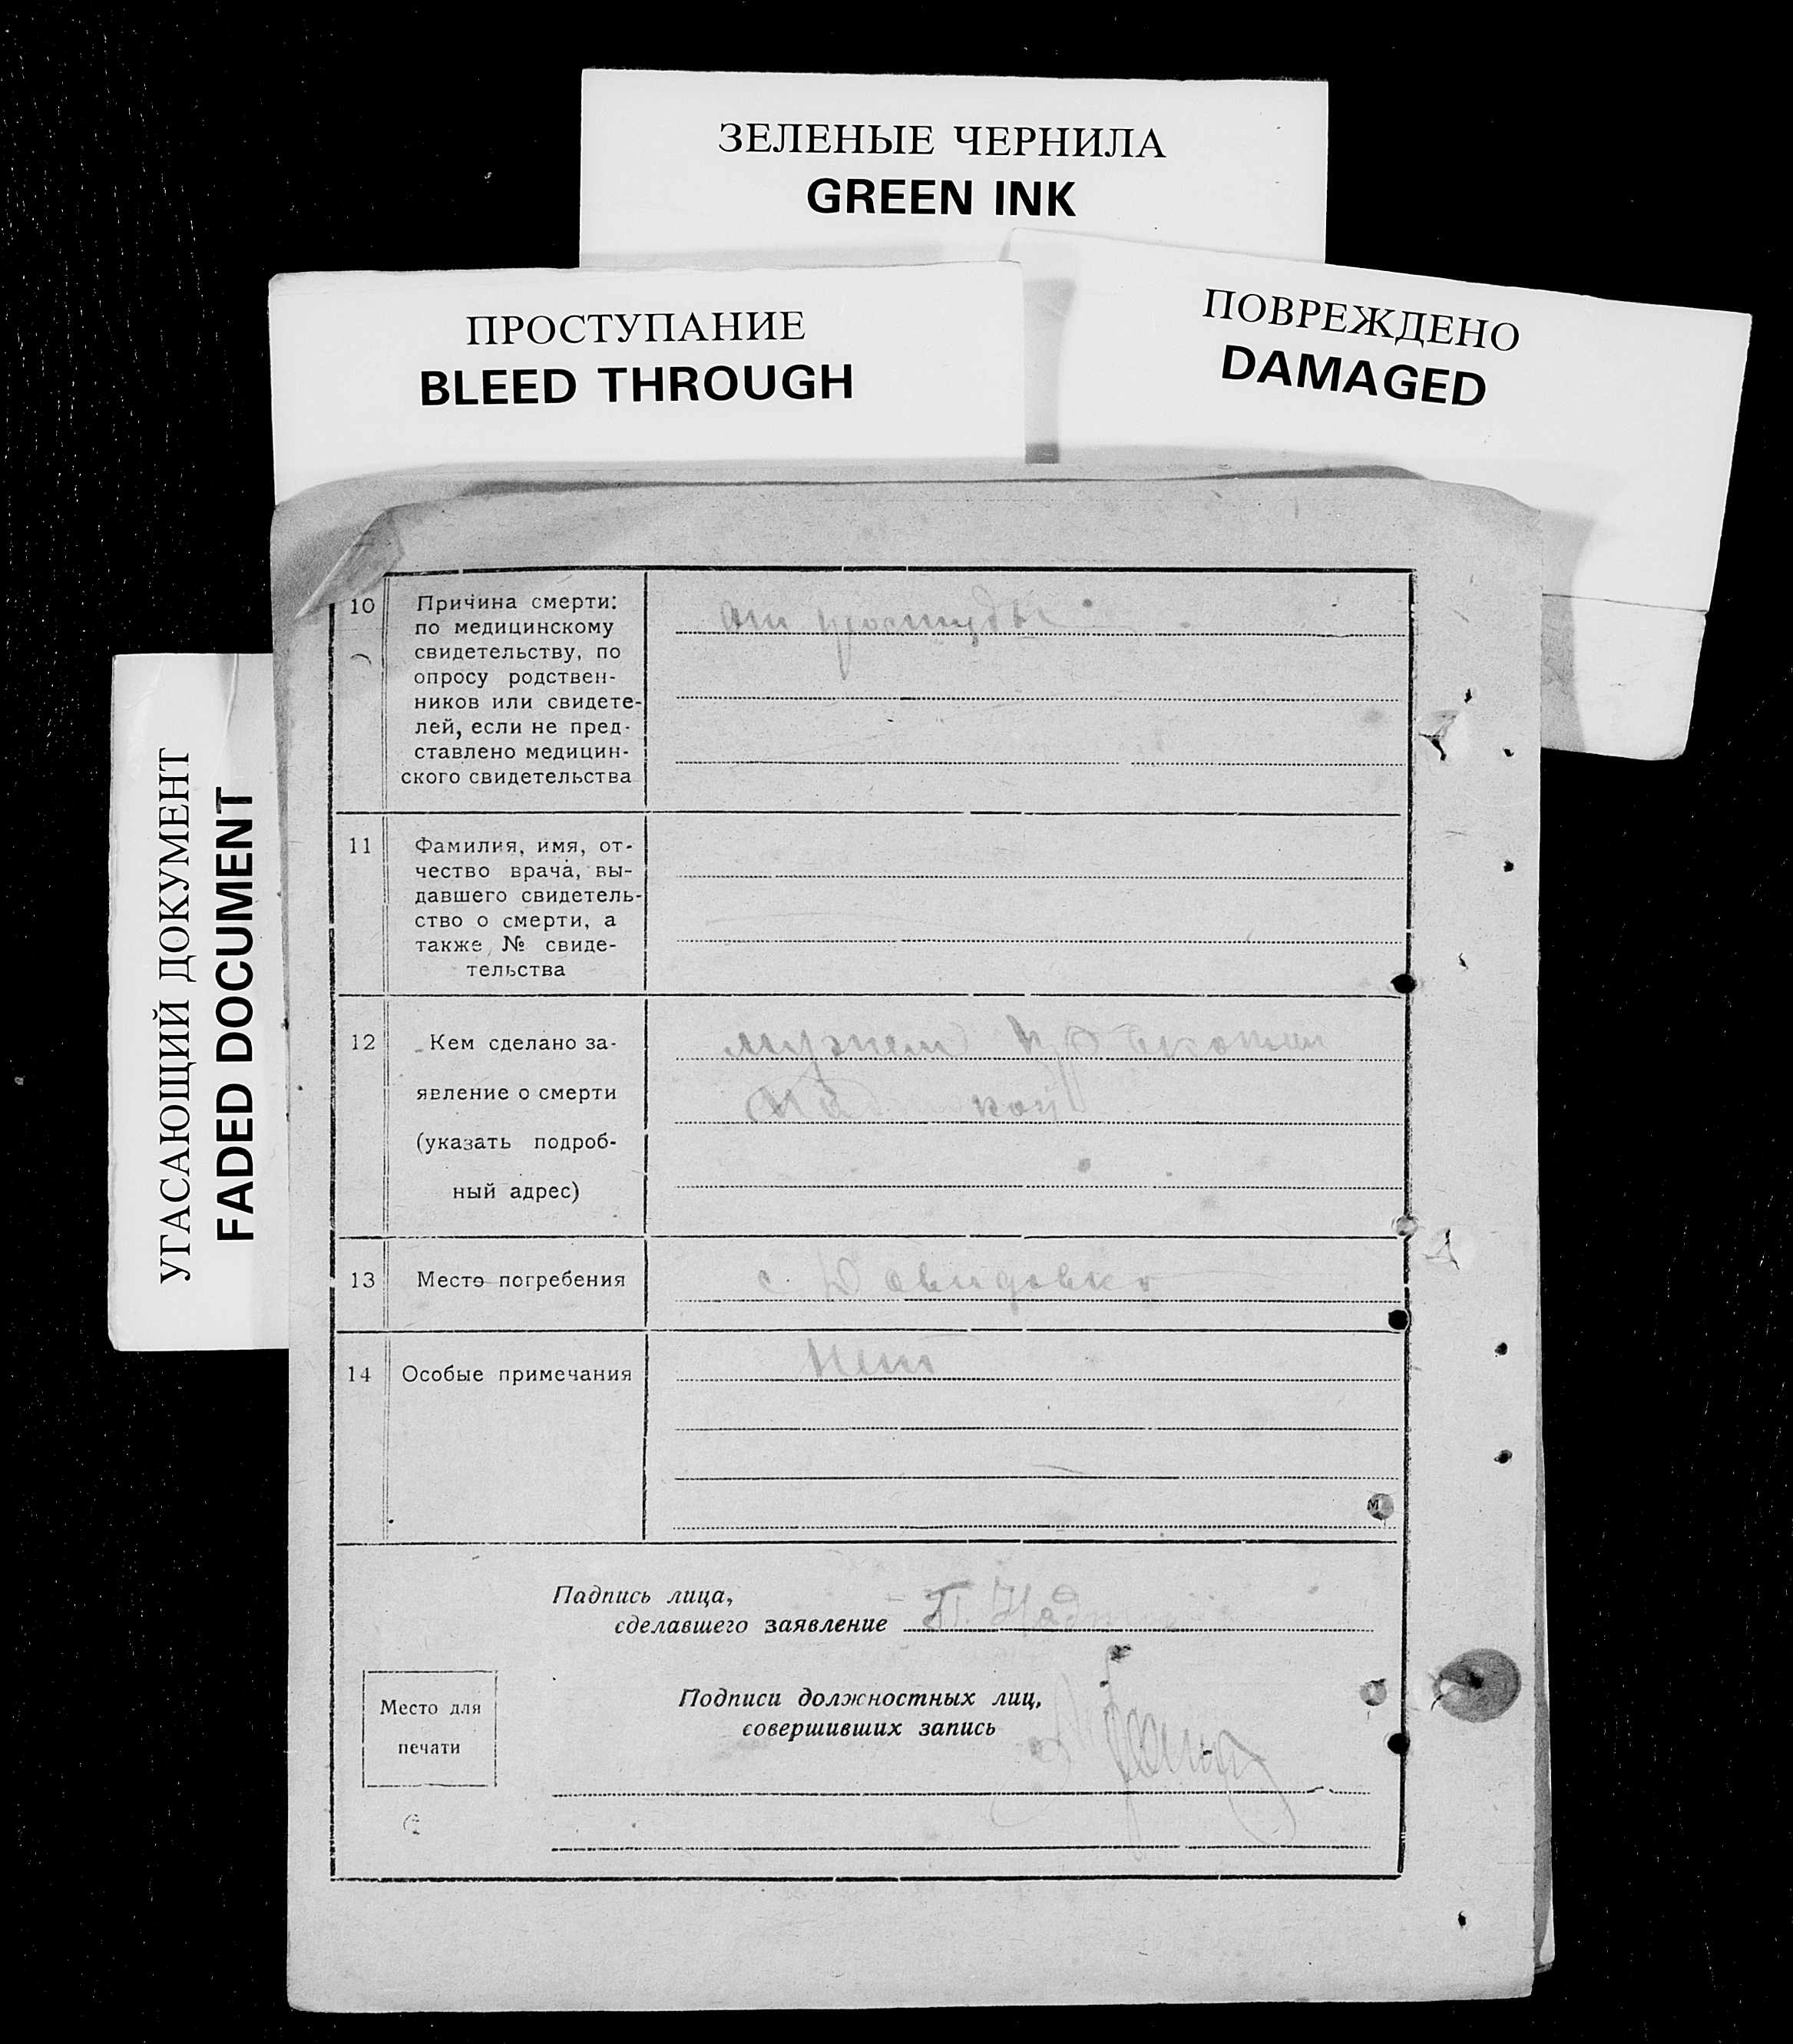 ЗЕЛЕНЫЕ ЧЕРНИЛА
GREEN INK
ПРОСТУПАНИЕ
BLEED THROUGH
ПОВРЕЖДЕНО
DAMAGED
УГАСАЮЩИЙ ДОКУМЕНТ
FADED DOCUMENT
10 Причина смерти:
по медицинскому
свидетельству, по
опросу родствен-
ников или свидете-
лей, если не пред-
ставлено медицин-
ского свидетельства
от простуды
11 Фамилия, имя, от-
чество врача, вы-
давшего свидетель-
ство о смерти, а
также № свиде-
тельства
12 Кем сделано за-
явление о смерти
(указать подроб-
ный адрес)
мужем
13 Место погребения
с. Давидовка
14 Особые примечания
Нет
Падпись лица,
сделавшего заявление
П.
Подписи должностных лиц,
совершивших запись
Место для
печати